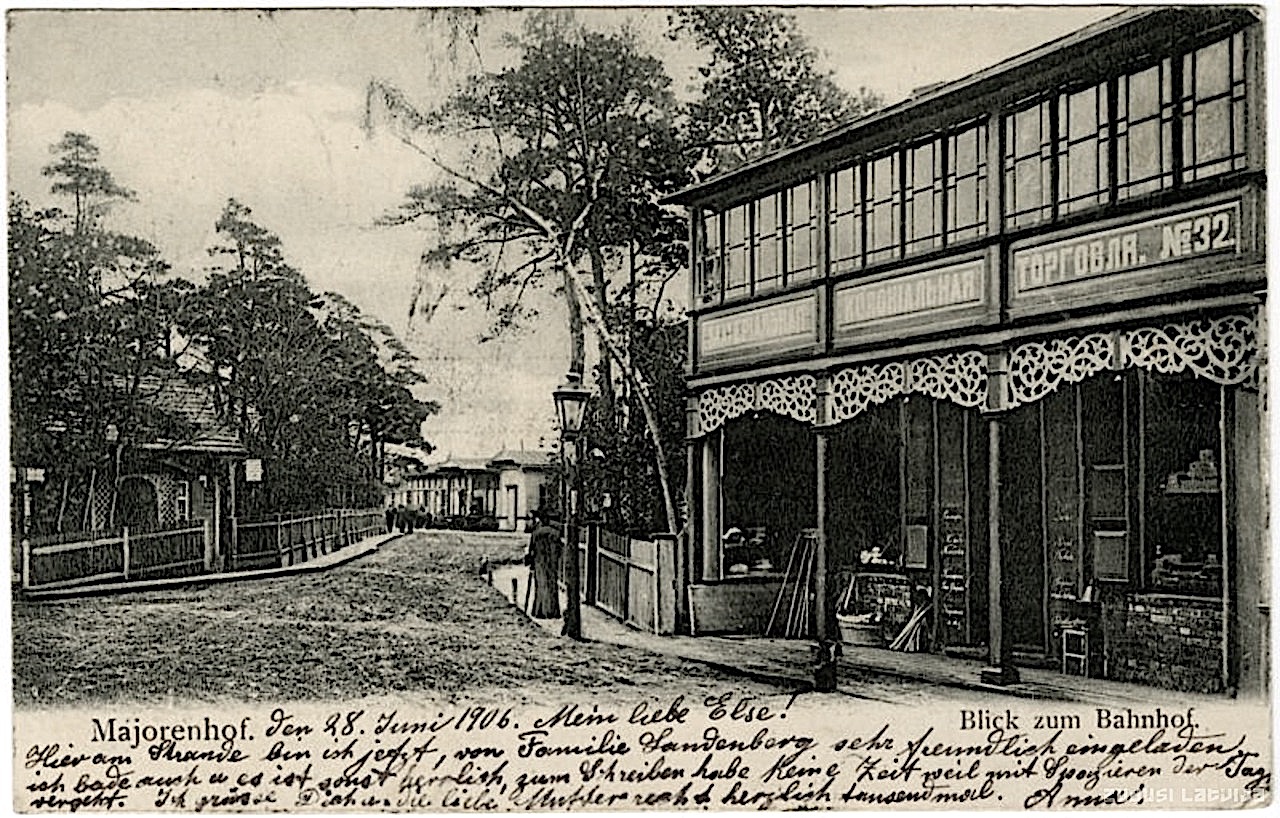 ТОРГОВЛЯ. №32.
КОЛОНІАЛЬНАЯ
Majorenhof. Den 28. Juni 1906. Mein liebe Else!
Blick zum Bahnhof.
Hier am Strande bin ich jetzt, von Familie Landenberg sehr freundlich eingeladen,
ich bade auch u es ist sonst herrlich, zum Schreiben habe keine Zeit weil mit Spazieren der Tag
vergeht. Ich grüsse Dich u. die liebe Mutter recht herzlich tausendmal. Anna
zudusi Latvija